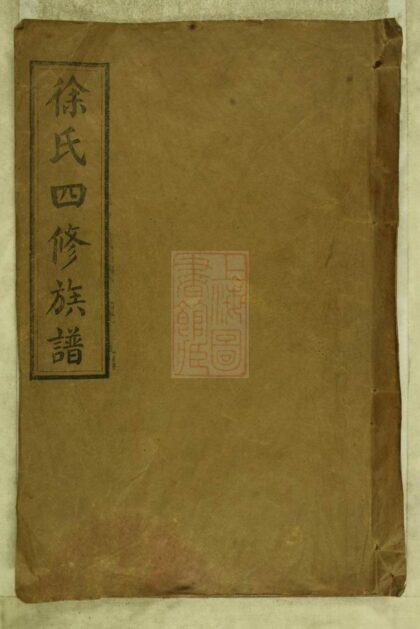 徐氏四修族譜
上海圖
書館臧